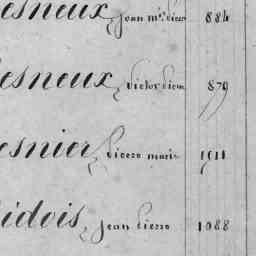 esneux, jean m.ie pierre 884
esneux, victor pierre 879
esnier, pierre marie 1911
idois, jean pierre 1088